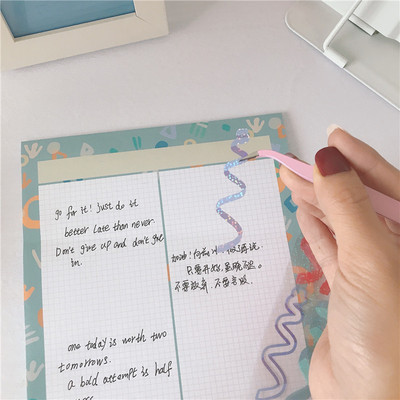 go for it! Just do it
better late than never.
Don't give up and don't give
in.
one today is worth two
tomorrows.
a bold attempt is half
加油！
只要开始,虽晚不迟。
不要放弃,不要言败。